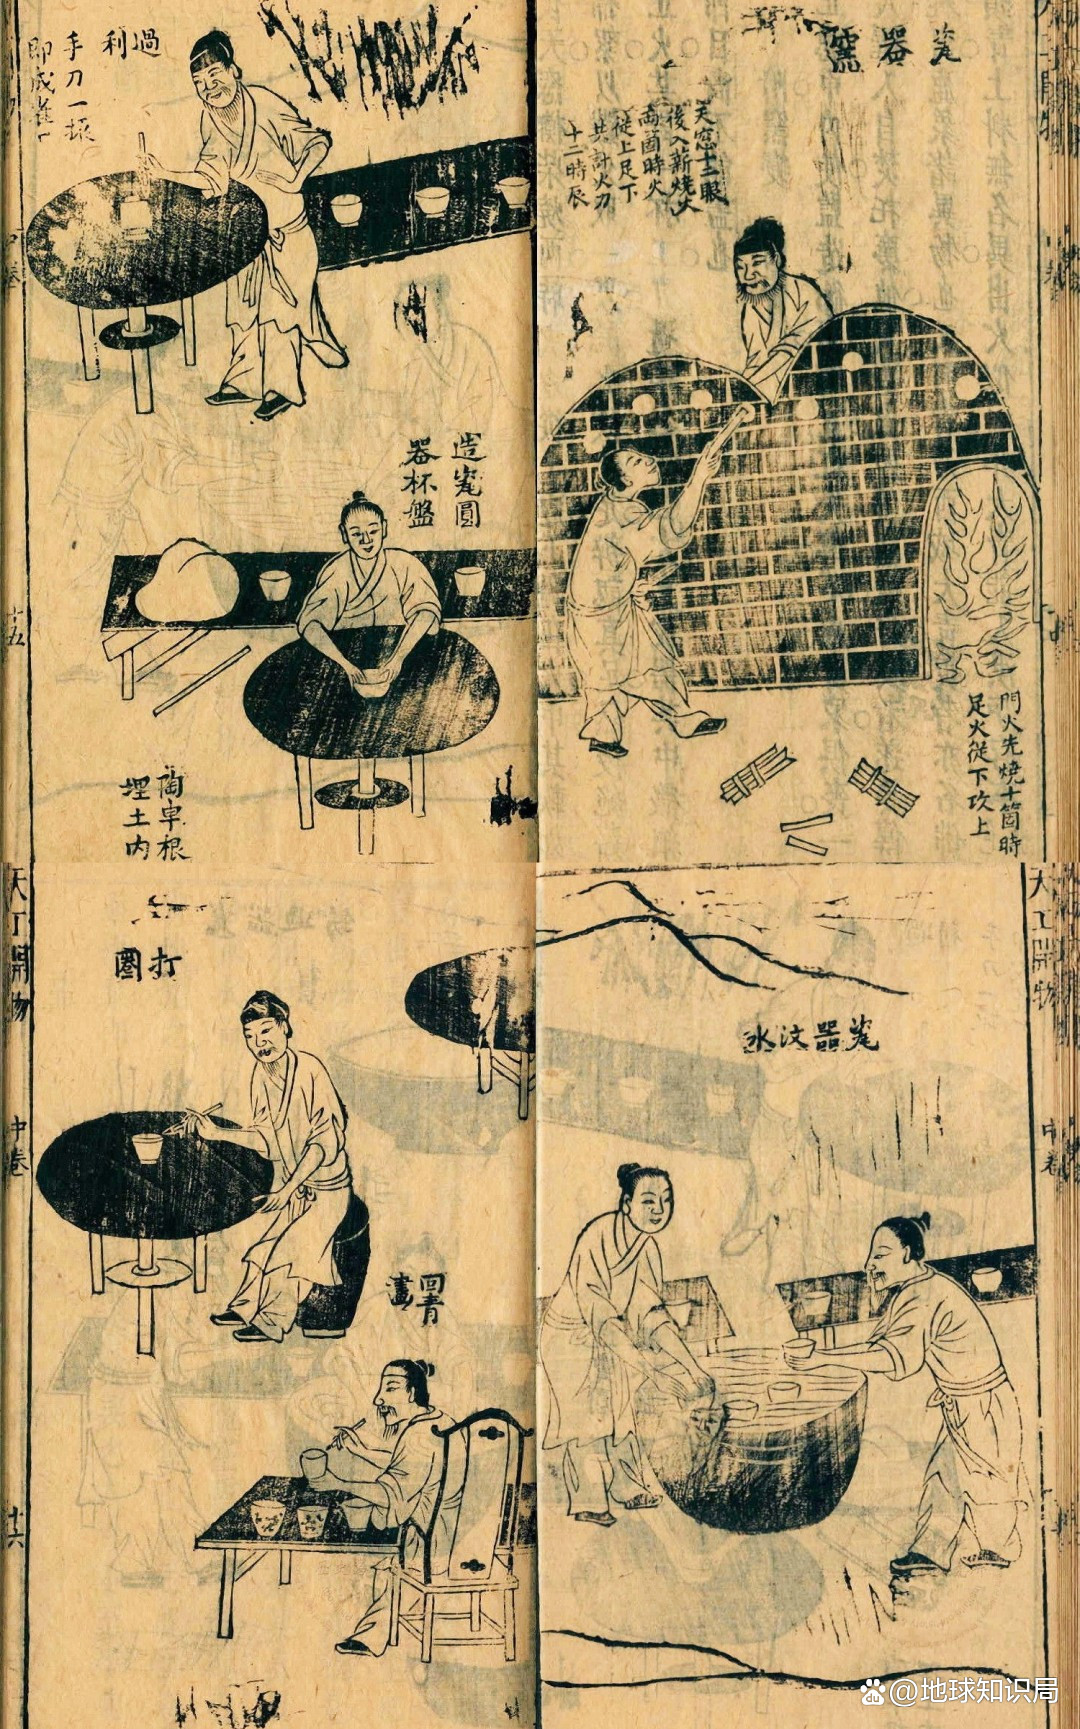 過利
手刀一振
即成雀
造瓷圓
器杯盤
陶車根
埋土内
十五
瓷器窯
天窓十二眼
後入薪燒火
兩箇時火
從上足下
共計火刀
十二時辰
門火先燒十箇時
足火從下攻上
天工開物
中卷
十六
打圈
回青
畫
天工開物
中卷
瓷器汶水
@地球知识局